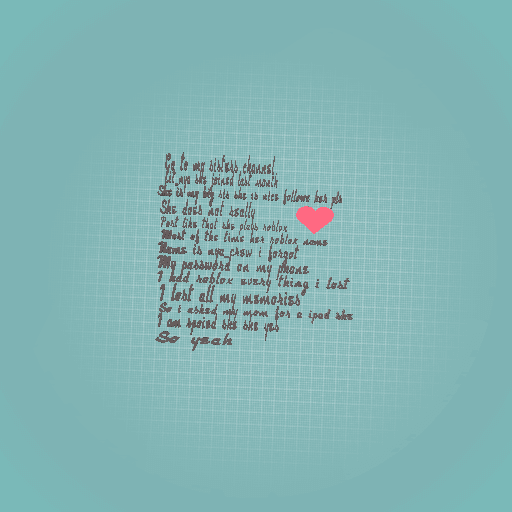 Go to my sisters channel
Lit_nya she joined last month
She is my big sis she is nice followe her pls
She does not really
Post like that she plays roblox
Most of the time her roblox name
Name is nya_chew i forgot
My password on my phone
I had roblox every thing i lost
I lost all my memories
So i asked my mom for a ipad she
I am spoied she she yes
So yeah